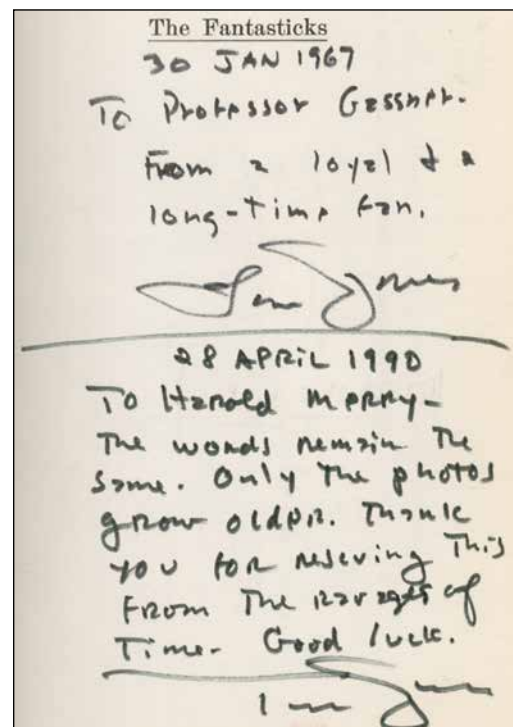 The Fantasticks
30 JAN 1967
To Professor Gessner.
From a loyal & a
long-time fan.
Tom Jones
28 APRIL 1990
To Harold Merry-
The words remain the
same. Only the photos
grow older. Thank
you for resciving This
From The ravages of
Time. Good luck.
Tom Jones